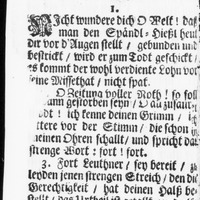 1.
Nicht wundere dich O Welt! daß
man den Spändl-Diebl heut
dir vor d'Augen stellt / gebunden und
bestrickt / wird er zum Todt geschickt /
es kommt der wohl verdiente Lohn vor
seine Missethat / nicht spat.
O Zeitung voller Noth! so soll
dann gestorben seyn / O du
! ich kenne deinen Grimm / ich
ttere vor der Stimm / die schon in
meinen Ohren schallt / und spricht das
strenge Wort: fort! fort.
3. Fort Leuthner / sey bereit / zu
leyden jenen strengen Streich / den die
Gerechtigkeit / hat deinen Halß be-
stellt / das Urtheil ist